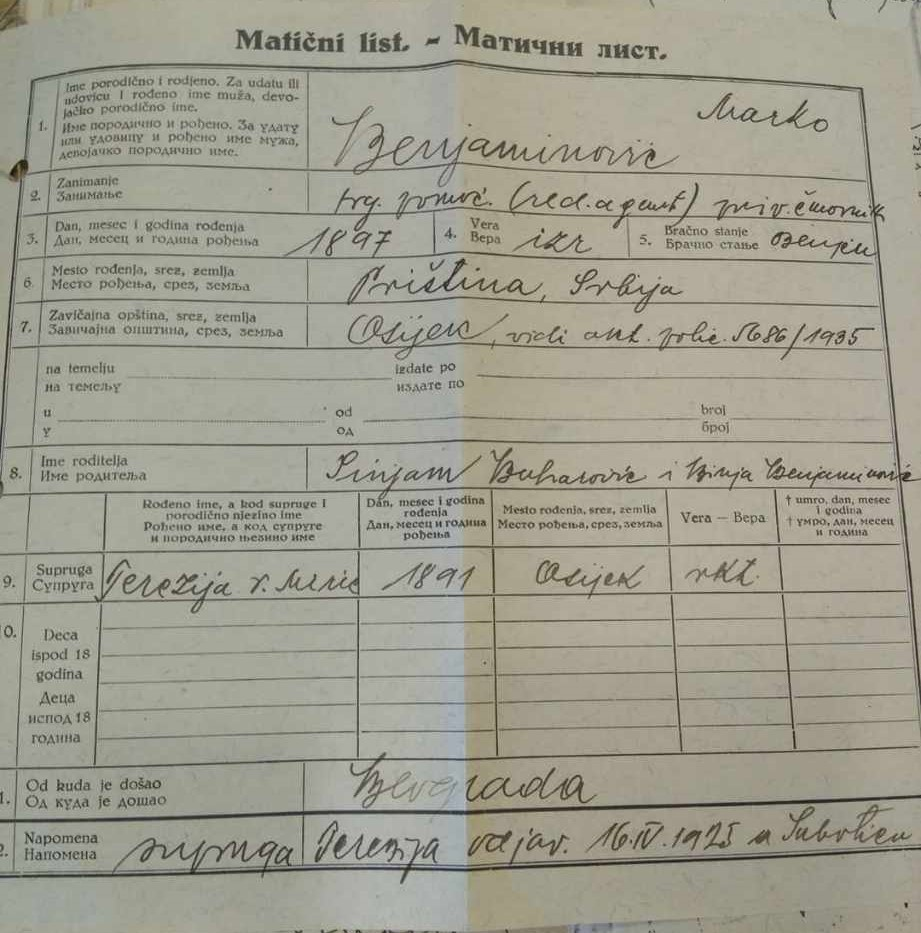 Matični list. - Матични лист.
1.
Ime porodično i rodjeno. Za udatu ili
udovicu i rođeno ime muža, devo-
jačko porodično ime.
Име породично и рођено. За удату
или удовицу и рођено име мужа,
девојачко породично име.
Marko
Benjaminović
2.
Zanimanje
Занимање
trg. pomoć. (red. agent) priv.
3.
Dan, mesec i godina rođenja
Дан, месец и година рођења
1897
4.
Vera
Вера
izr
5.
Bračno stanje
Брачно стање
6.
Mesto rođenja, srez, zemlja
Место рођења, срез, земља
Priština, Srbija
7.
Zavičajna opština, srez, zemlja
Завичајна општина, срез, земља
Osijek, vidi akt. polic. 5686/1935
na temelju
на темељу
izdate po
издате по
u
у
od
од
broj
број
8.
Ime roditelja
Име родитеља
i Binja Benjaminović
Rođeno ime, a kod supruge i
porodično njezino ime
Рођено име, а код супруге
и породично њезино име
Dan, mesec i godina
rođenja
Дан, месец и година
рођења
Mesto rođenja, srez, zemlja
Место рођења, срез, земља
Vera — Вера
† umro, dan, mesec
i godina
† умро, дан, месец
и година
9.
Supruga
Супруга
Terezija r.
1891
Osijek
rkt.
0.
Deca
ispod 18
godina
Деца
испод 18
година
1.
Od kuda je došao
Од куда је дошао
Beograda
2.
Napomena
Напомена
supruga Terezija odjav. 16.IV.1925 u Suboticu